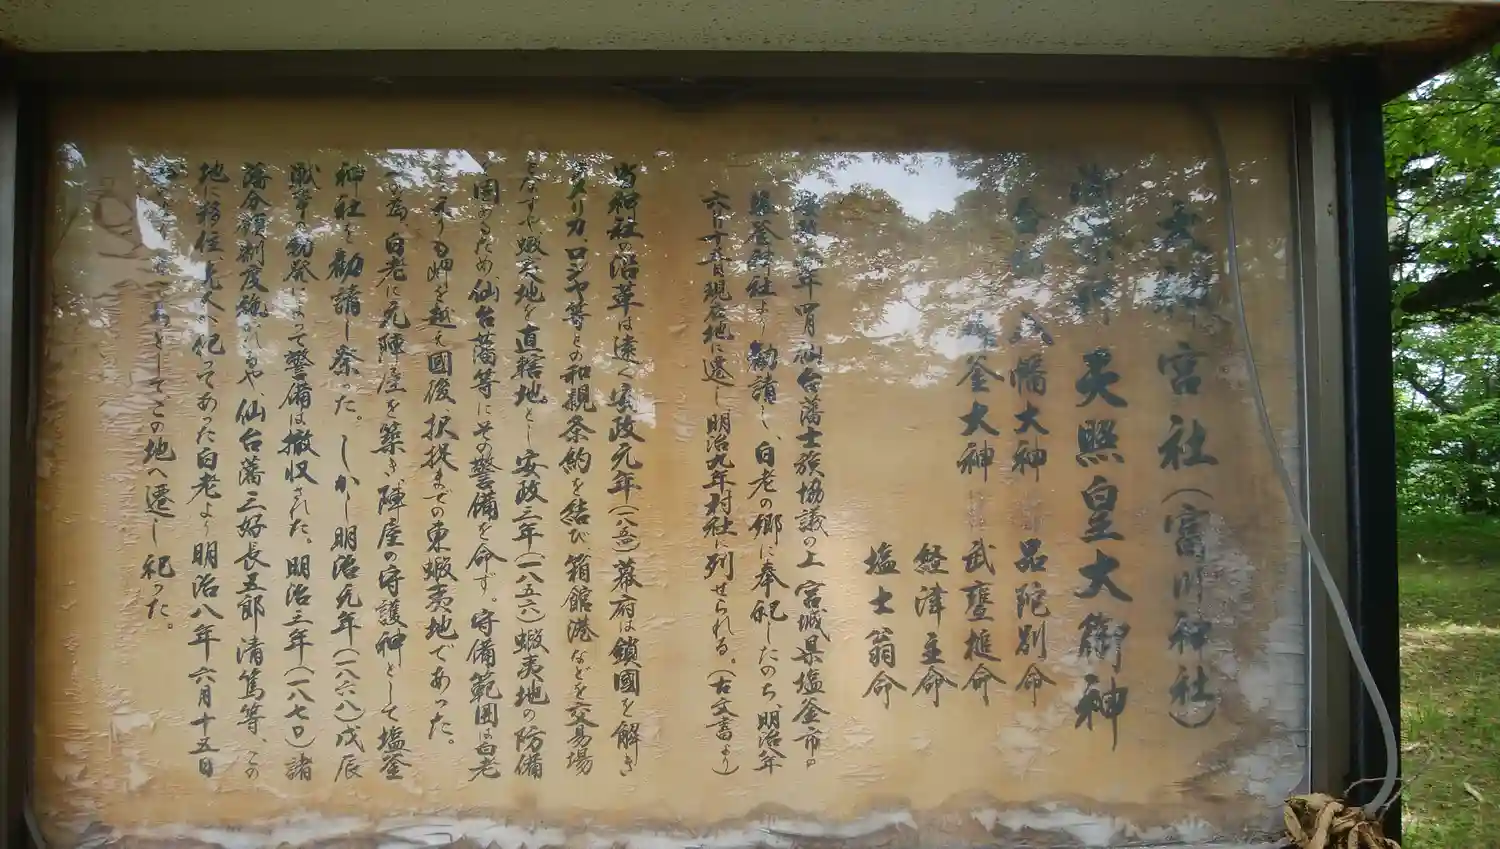 宮社(富川神社)
天照皇大御神
八幡大神 品陀別命
釜大神 武甕槌命
経津主命
塩土翁命
年四月仙台藩士族協議の上宮城県塩釜市の
塩釜神社より勧請し、白老の郷に奉祀したのち、明治八年
六月十五日現在地に遷し明治九年村社に列せられる。(古文書より)
当神社の沿革は遠く安政元年(一八五四)幕府は鎖國を解き
アメリカ、ロシヤ等との和親条約を結び、箱館港などを交易場
となすや蝦夷地を直轄地とし安政三年(一八五六)蝦夷地の防備
を固めるため、仙台藩等にその警備を命ず。守備範囲は白老
えりも岬を越え國後、択捉までの東蝦夷地であった。
の為、白老に元陣屋を築き、陣屋の守護神として塩釜
神社を勧請し祭った。しかし明治元年(一八六八)戊辰
戦争の勃発によって警備は撤収された。明治三年(一八七〇)諸
藩分領制度施かれるや仙台藩三好長五郎清篤等、この
地に移住先人、祀ってあった白老より明治八年六月十五日
として、この地へ遷し祀った。